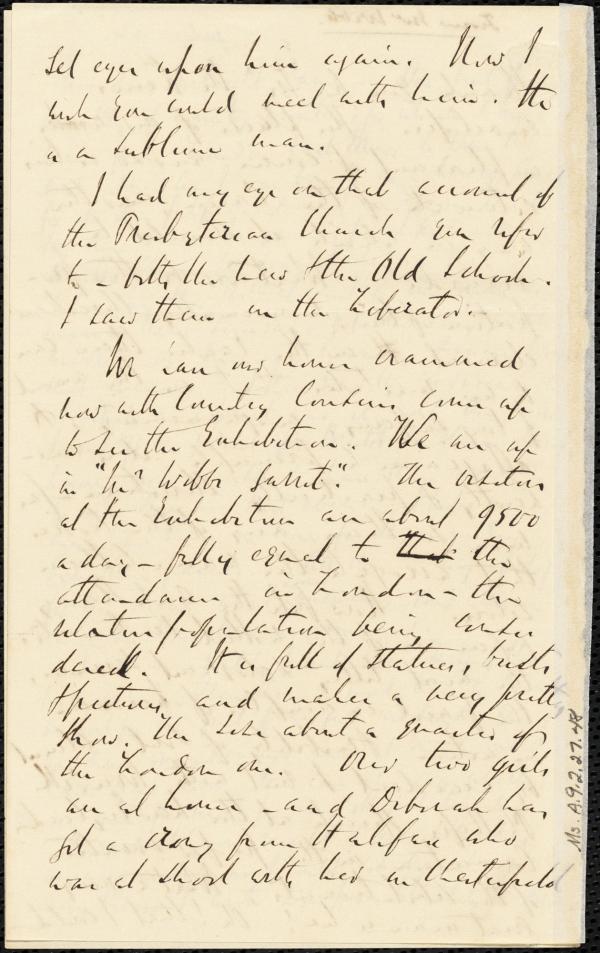 set eyes upon him again. Now I
wish you could meet with him. He
is a sublime man.
I had my eye on that account of
the Presbyterian Church you refer
to - both the New & the Old School.
I saw them in the Liberator.
We have our house crammed
now with Country Cousins come up
to see the Exhibition. We are up
in "Mr Webbs garret". The visitors
at the Exhibition are about 9500
a day - fully equal to that the
attendance in London - the
relative population being consi
dered. It is full of statues, busts
& pictures, and makes a very pretty
show. The size about a quarter of
the London one. Our two girls
are at home - and Deborah has
got a crony from Halifax who
was at school with her in Chesterfield
Ms. A.9.2.27.48